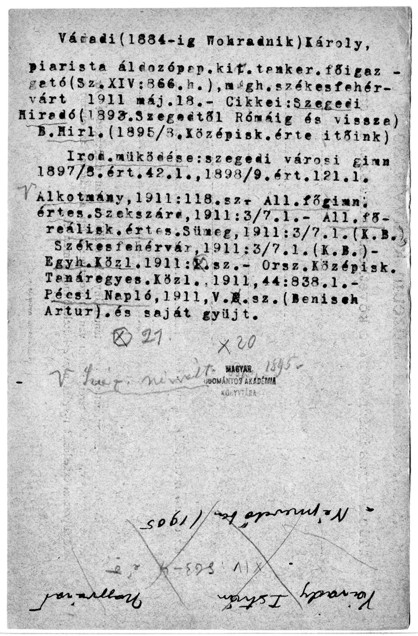 Váradi(1884-ig Wohradnik)Károly,
piarista áldozópap.kit.tanker.főigaz-
gató(Sz.XIV:866.h.),megh.székesfehér-
várt 1911 máj.18.- Cikkei:Szegedi
Hiradó(1893.Szegedtől Rómáig és vissza)
B.Hirl.(1895/8.Középisk.érte itőink)
Irod.működése:szegedi városi gimn
1897/8.ért.42.l.,1898/9.ért.121.l.
V Alkotmány,1911:118.sz.- All.főgimn.
értes.Szekszárd,1911:3/7.l.- All.fő-
reálisk.értes.Sümeg,1911:3/7.l.(K.B.)
Székesfehérvár,1911:3/7.l.(K.B.)-
Egyh.Közl.1911: .sz.- Orsz.Középisk.
Tanáregyes.Közl.1911,44:838.l.-
Pécsi Napló,1911,V. .sz.(Benisch
Artur).és saját gyüjt.
X 21
X 20
V 1895.
MAGYAR
TUDOMÁNYOS AKADÉMIA
KÖNYVTÁRA
Várady István
Nagyváradi
XIV:863-4
Népnevelő (1905